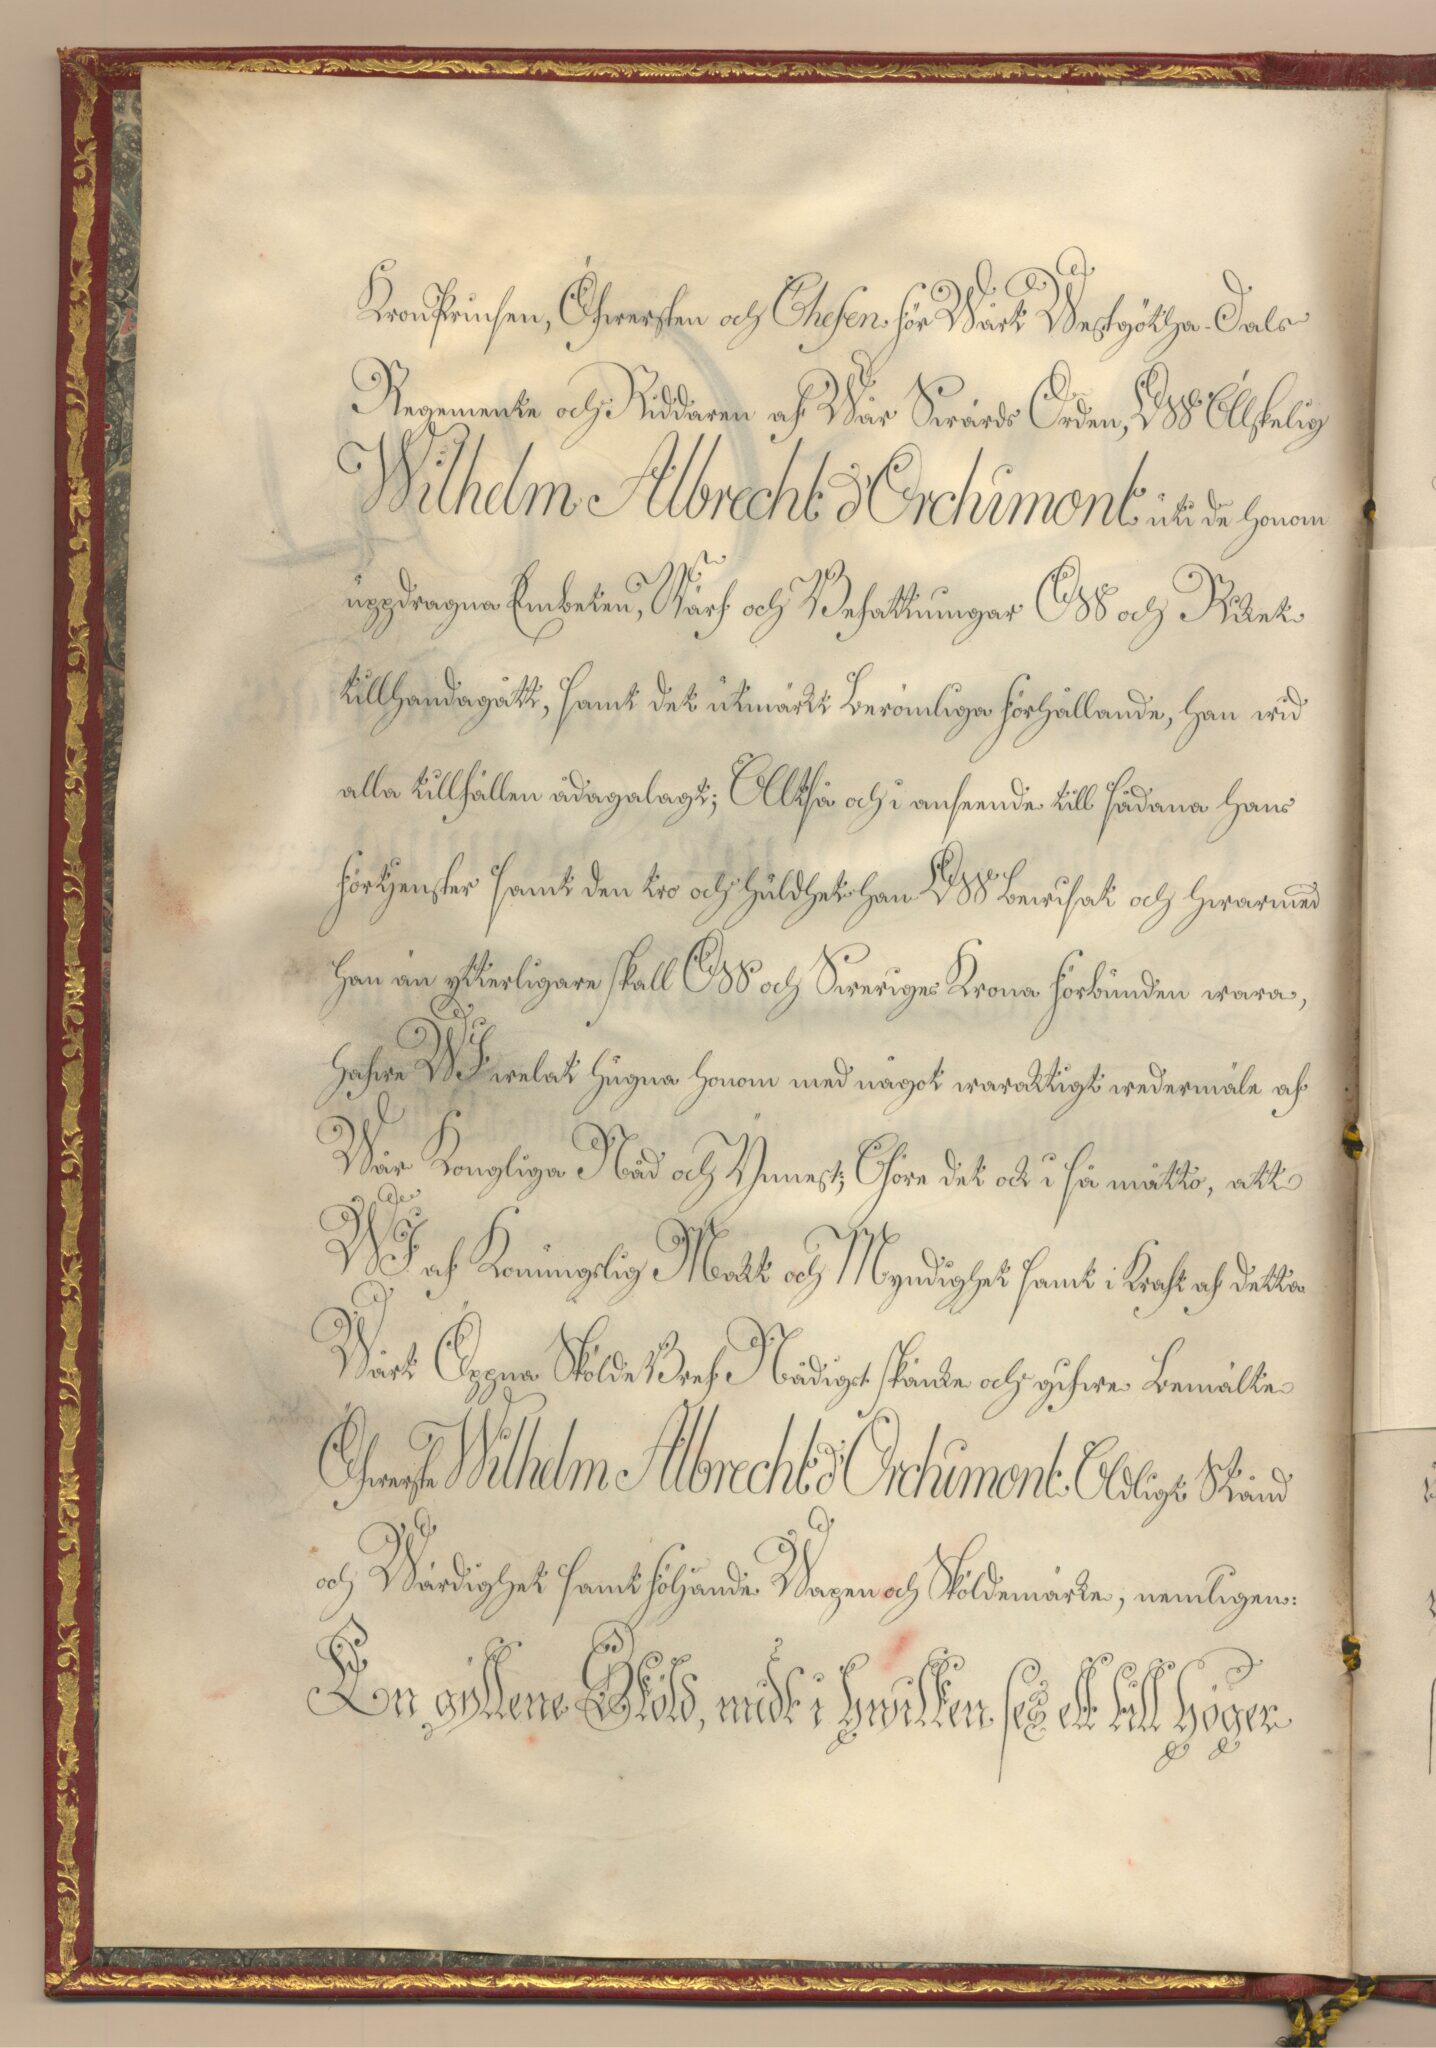 KronPrinsen, Öfwersten och Chefen för Wårt Westgötha-Dals
Regemente och Riddaren af Wår Swärds Orden, OSS Ällskelig
Wilhelm Albrecht d'Orchimont uti de honom
uppdragna Embeten, Wärf och Befattningar OSS och Riket
tillhandagått, samt det utmärkt berömliga förhållande, han wid
alla tillfällen ådagalagt; Alltså och i anseende till sådana hans
förtjenster samt den tro och huldhet han OSS bewisat och hwarmed
han än ytterligare skall OSS och Sweriges Krona förbunden wara,
hafwe WI welat hugna honom med något waraktigt wedermäle af
Wår Kongliga Nåd och Ynnest; Giöre det ock i så måtto, att
WI af Konungslig Makt och Myndighet samt i Kraft af detta
Wårt Öppna SköldeBref Nådigst skänke och gifwe bemälte
Öfwerste Wilhelm Albrecht d'Orchimont Adligt Stånd
och Wärdighet samt följande Wapen och Sköldemärke, nemligen:
En gyllene Sköld, midt i hwilken ses ett till höger